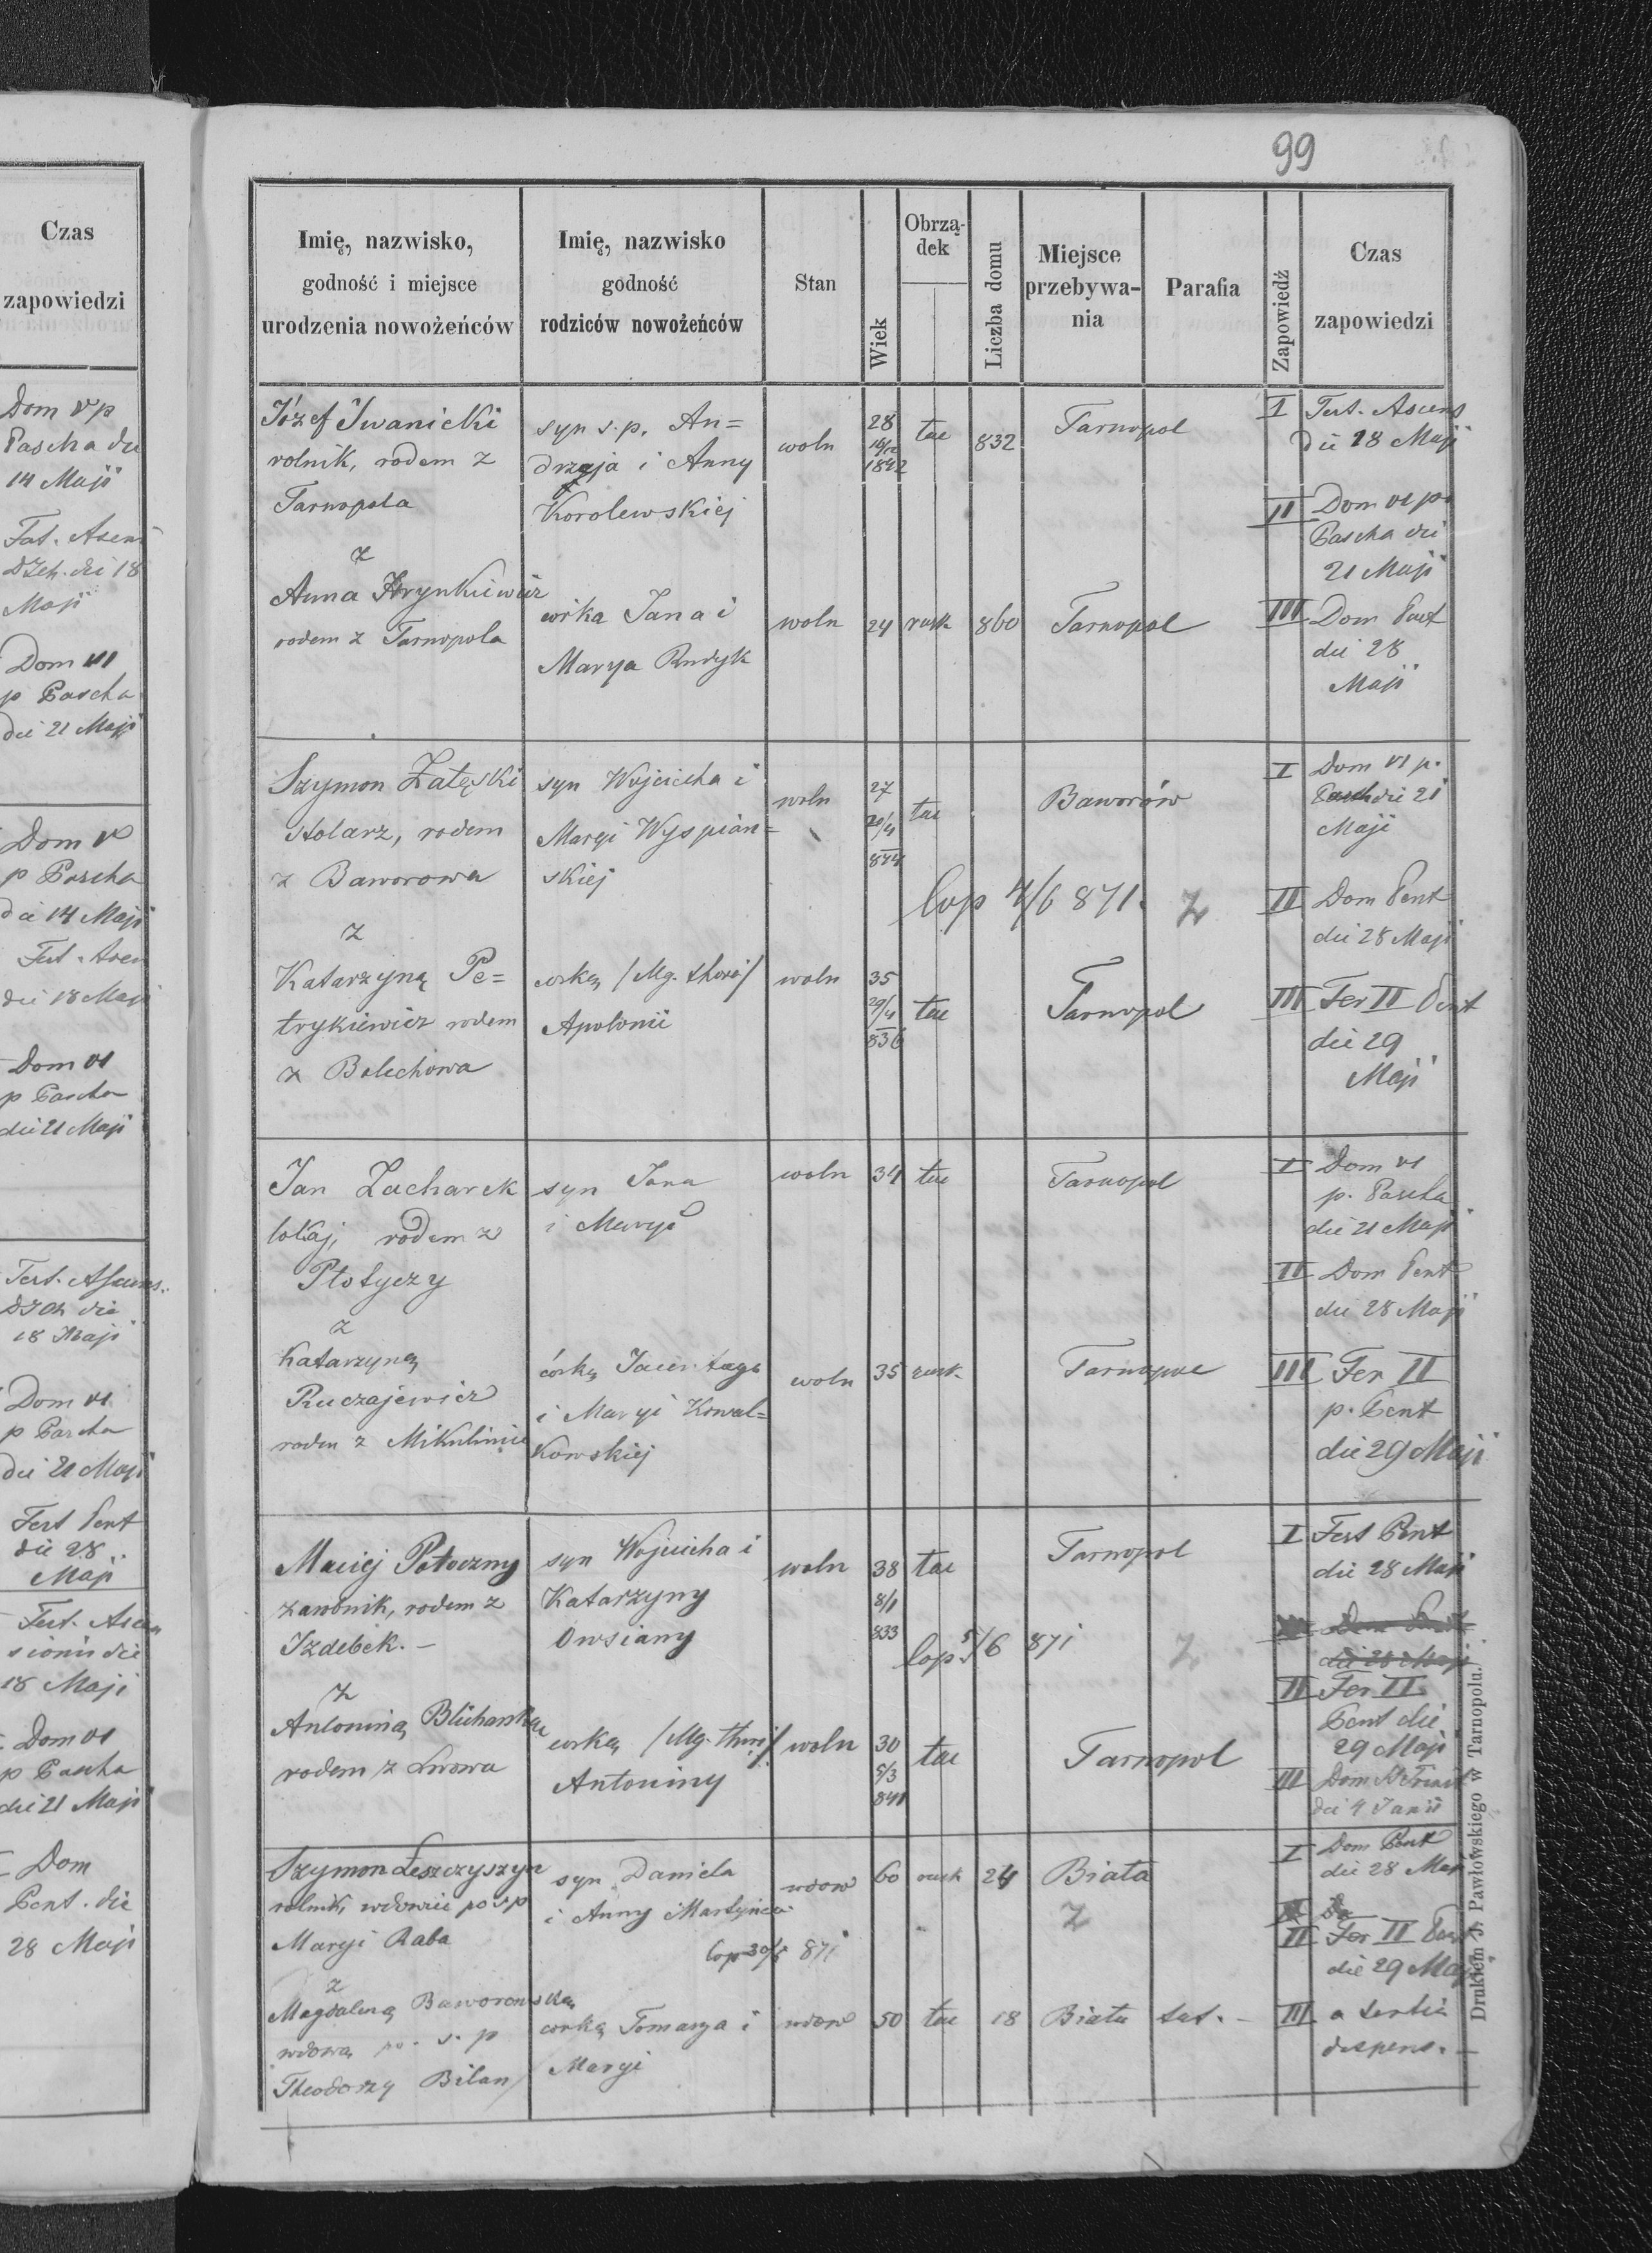 Czas
zapowiedzi
Dom V p
Pascha die
14 Maji
18
Maji
Dom VI
p Pascha
die 21 Maji
Dom V
p Pascha
die 14 Maji
die 18 Maji
Dom VI
p Pascha
die 21 Maji
die
18 Maji
Dom VI
p Pascha
die 21 Maji
Fest Pent
die 28
Maji
Fest. Ascen
sionis die
18 Maji
Dom VI
p Pascha
die 21 Maji
Dom
Pent. die
28 Maji
99
Imię, nazwisko,
godność i miejsce
urodzenia nowożeńców
Imię, nazwisko
godność
rodziców nowożeńców
Stan
Wiek
Obrzą-
dek
Liczba domu
Miejsce
przebywa-
nia
Parafia
Zapowiedź
Czas
zapowiedzi
Józef Iwanicki
rolnik, rodem z
Tarnopola
syn s.p. An=
drzeja i Anny
Korolewskiej
woln
28
1842
832
Tarnopol
I Fest. Ascens
die 18 Maji
II Dom VI p
Pascha die
21 Maji
z
Anna Hrynkiewicz
rodem z Tarnopola
córka Jana i
Marya Rudyk
woln 24 rusk 860 Tarnopol
III Dom Pent
die 28
Maji
Szymon Załęski
stolarz, rodem
z Baworowa
syn Wojciecha i
Maryi Wyspiań=
skiej
woln
27
20/4
844
Baworów
I Dom VI p.
die 21
Maji
cop 4/6 871. z
II Dom Pent
die 28 Maji
z
Katarzyną Pe=
trykiewicz rodem
z Bolechowa
córką
Apolonii
woln
35
29/4
836
Tarnopol
III Fer II Pent
die 29
Maji
Jan Zacharek
lokaj, rodem z
Płotyczy
syn Jana
i Maryi
woln 34
Tarnopol
I Dom VI
p. Pascha
die 21 Maji
II Dom Pent
die 28 Maji
z
Katarzyną
Ruczajewicz
rodem z Mikuliniec
córką
i Maryi Kowal=
kowskiej
woln 35 rusk.
Tarnopol
III Fer II
p. Pent
die 29 Maji
Maciej Potoczny
rodem z
Izdebek. –
syn Wojciecha i
Katarzyny
Owsiany
woln
38
8/1
833
Tarnopol
I Fest Pent
die 28 Maji
cop 5/6 871 z
II Fer II
Pent die
29 Maji
z
Antoniną
rodem z Lwowa
córką
Antoniny
woln
30
5/3
841
Tarnopol
III Dom
die 4 Junii
Szymon Leszczyszyn
rolnik, wdowiec po s p
Maryi Raba
syn Daniela
i Anny
wdow 60 rusk 24 Biała
z
I Dom Pent
die 28 Maji
cop 30/5 871
II Fer II Pent
die 29 Maji
z
Magdaleną Baworowską
wdową po. s. p
Theodorzy Bilan
córką Tomasza i
Maryi
wdow 50
18 Biała
III a tertia
dispens. –
Drukiem J. Pawłowskiego w Tarnopolu.